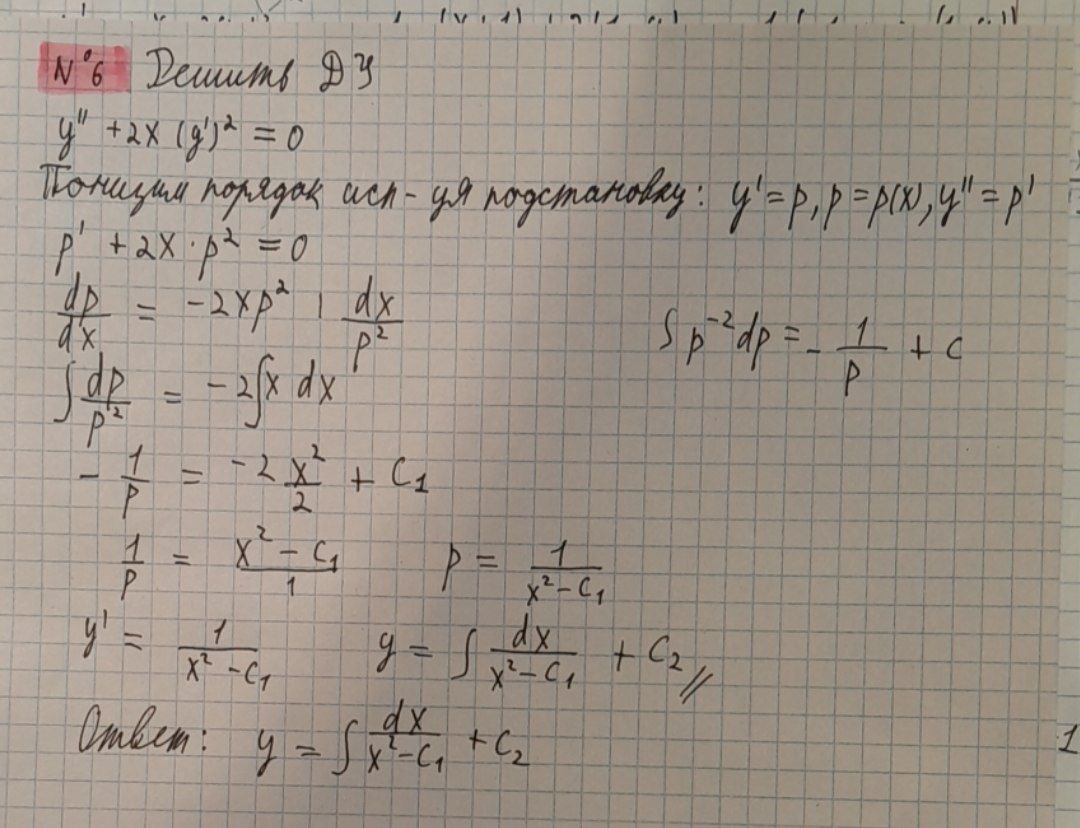 N°6 Решить ДУ
y'' + 2x (y')² = 0
Понизим порядок исп-уя подстановку: y' = p, p = p(x), y'' = p'
p' + 2x · p² = 0
dp/dx = -2xp² | dx/p²
∫ p⁻² dp = - 1/p + c
∫ dp/p² = -2∫x dx
- 1/p = -2 x²/2 + C₁
1/p = (x² - C₁)/1 p = 1/(x² - C₁)
y' = 1/(x² - C₁) y = ∫ dx/(x² - C₁) + C₂ //
Ответ: y = ∫ dx/(x² - C₁) + C₂
1